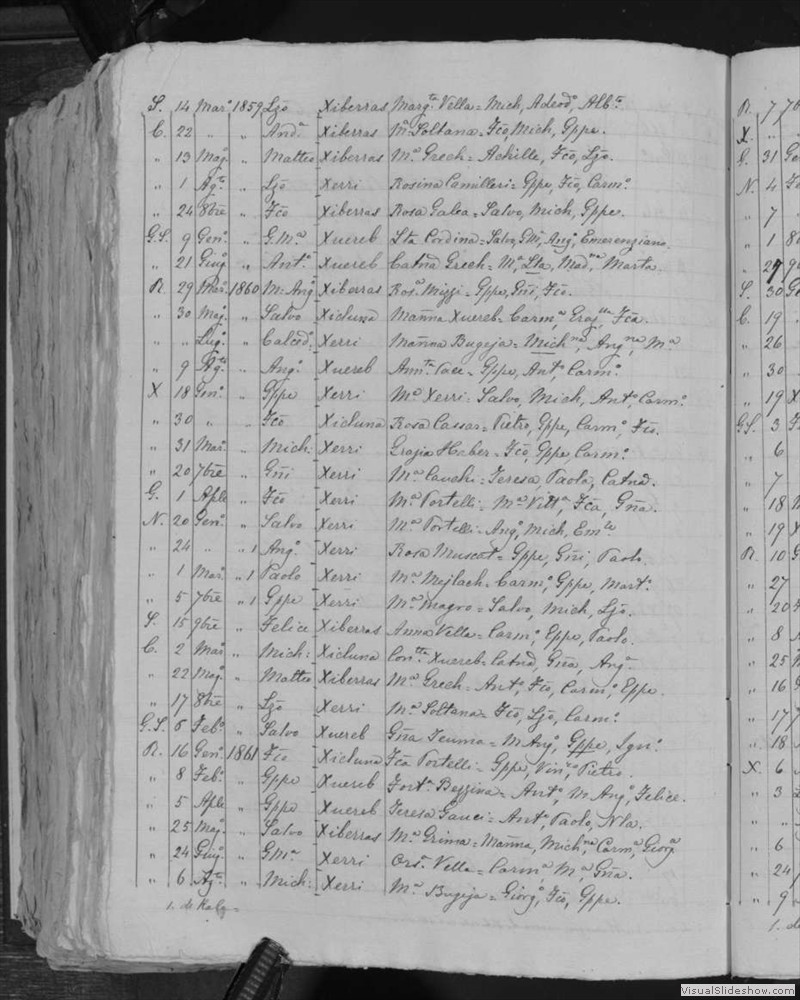 S. 14 Mar.º 1859 Lzō Xiberras Marg.ta Vella = Mich, Adeod.º, Alb.to
C. 22 " " And.a Xiberras M.a Soltana = Fcō, Mich, Gppe.
" 13 Mag.º " Matteo Xiberras M.a Grech = Achille, Fcō, Lzō.
" 1 Ag.to " Lzō Xerri Rosina Camilleri = Gppe, Fcō, Carm.º
" 24 8bre " Fcō Xiberras Rosa Galea = Salvo, Mich, Gppe.
G.S. 9 Gen.º " G.M.a Xuereb Lta Cordina = Salvo, GM.a, Ang.º, Emerenziana.
" 21 Giug.º " Ant.º Xuereb Catnā Grech = M.a, Lta, Mad.na, Marta.
R. 29 Mar.º 1860 M. Ang.º Xiberras Ros.a Mizzi = Gppe, Gñi, Fcō.
" 30 Mag.º " Salvo Xicluna Mañna Xuereb = Carm.a, Graz.lla, Fca.
" " Lug.º " Calced.º Xerri Mañna Bugeja = Mich.na, Ang.na, M.a
" 9 Ag.to " Ang.º Xuereb Ann.ta Pace = Gppe, Ant.º, Carm.º
X 18 Gen.º " Gppe Xerri M.a Xerri = Salvo, Mich, Ant.º, Carm.º
" 30 " " Fcō Xicluna Rosa Cassar = Pietro, Gppe, Carm.º, Fcō.
" 31 Mar.º " Mich: Xerri Grazia Haber = Fcō, Gppe, Carm.º
" 20 7bre " Gñi Xerri M.a Cauchi = Teresa, Paola, Catnā.
G. 1 Aple " Fcō Xerri M.a Portelli = M.a Vitt.a, Fca, Gña.
N. 20 Gen.º " Salvo Xerri M.a Portelli = Ang.º, Mich, Em.le
" 24 " " 1 Ang.º Xerri Rosa Muscat = Gppe, Gñi, Paolo.
" 1 Mar.º " 1 Paolo Xerri M.a Mejlach = Carm.º, Gppe, Mart.º
" 5 7bre " 1 Gppe Xerri M.a Magro = Salvo, Mich, Lzō.
S. 15 9bre " Felice Xiberras Anna Vella = Carm.º, Gppe, Paolo.
C. 2 Mar.º " Mich: Xicluna Con.tta Xuereb = Catnā, Gña, Ang.a
" 22 Mag.º " Matteo Xiberras M.a Grech = Ant.º, Fcō, Carm.º, Gppe.
" 17 8bre " Lzō Xerri M.a Soltana = Fcō, Lzō, Carm.º
G.S. 6 Feb.º " Salvo Xuereb Gña Teuma = M.Ang.º, Gppe, Ign.º
R. 16 Gen.º 1861 Fcō Xicluna Fca Portelli = Gppe, Vin.º, Pietro.
" 8 Feb.º " Gppe Xuereb Fort.a Bezzina = Ant.º, M. Ang.º, Felice.
" 5 Aple " Gppe Xuereb Teresa Gauci = Ant.º, Paolo, Nla.
" 25 Mag.º " Salvo Xiberras M.a Grima = Mañna, Mich.na, Carm.a, Giorg.a
" 24 Giug.º " G.M.a Xerri Ors.a Vella = Carm.a, M.a, Gña.
" 6 Ag.to " Mich: Xerri M.a Bugeja = Giorg.º, Fcō, Gppe.
R. 7 7b
X. "
S. 31 Ge
N. 4
" 7
" 1 8
" 27 9
S. 30 G
C. 19
" 26
" 30
" 19 X
G.S. 3
" 6
" 7
" 18
" 19 X
R. 10 G
" 27
" 20
" 8
" 25
" 16 G
" 17
" 18
X. 6
" 3
" "
" 6
" 24
" 9
1. de
VisualSlideshow.com